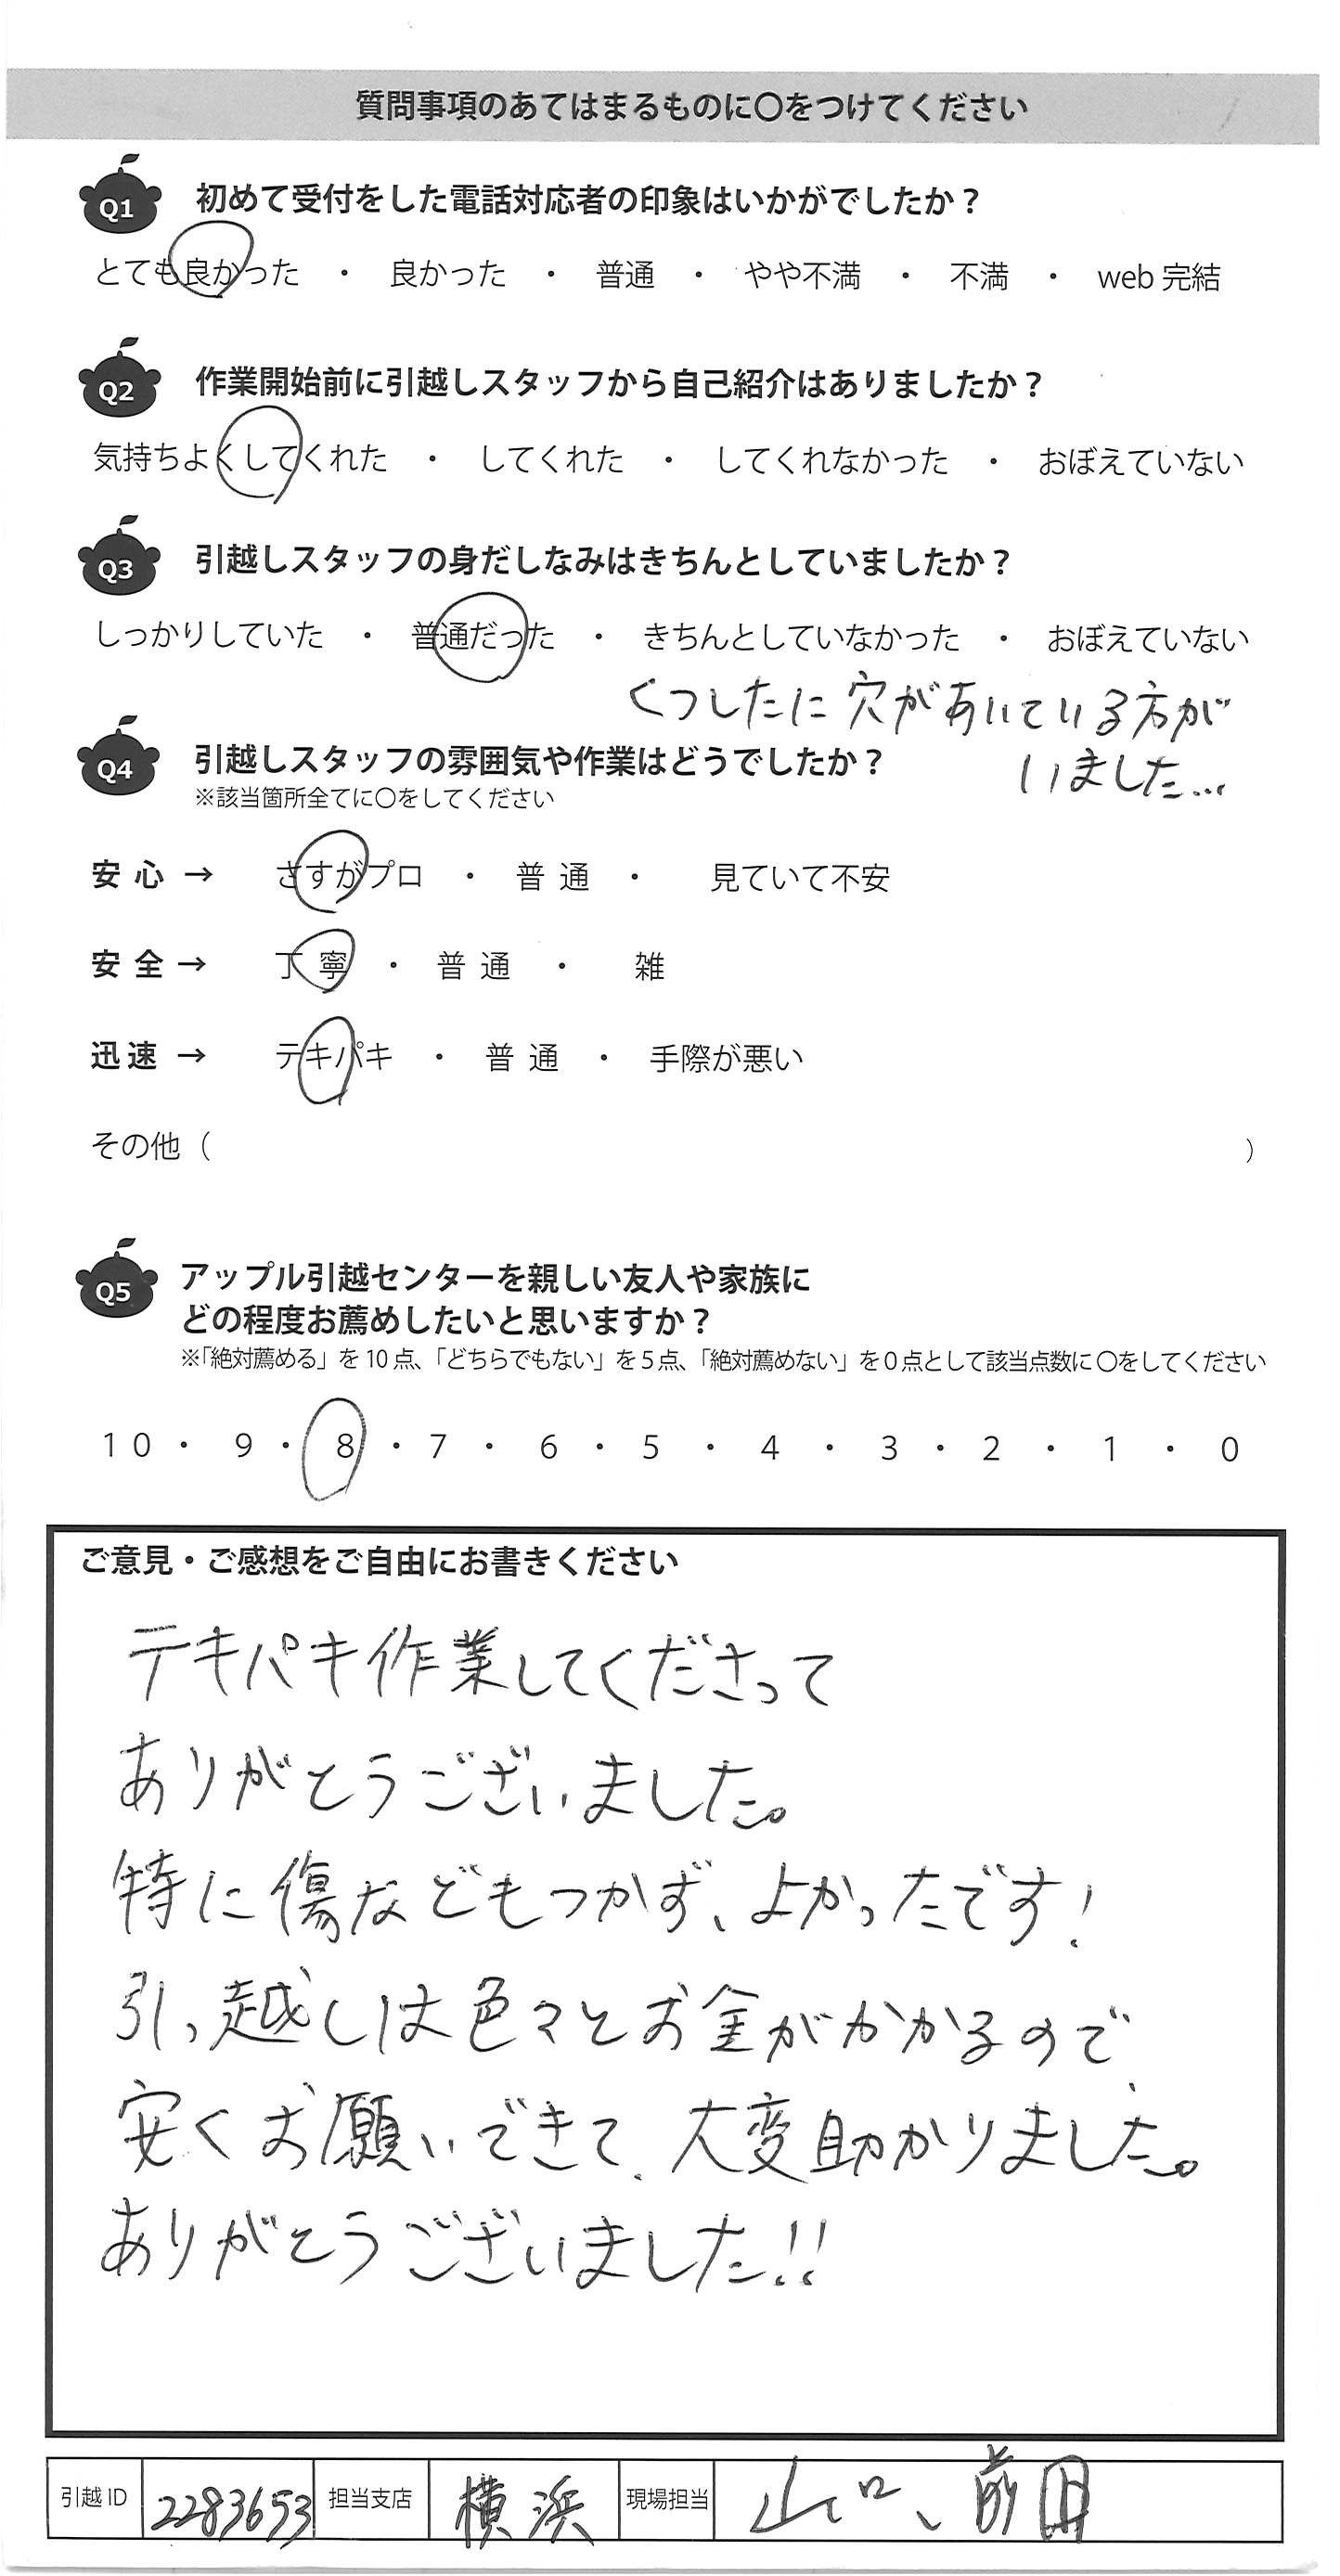 質問事項のあてはまるものに〇をつけてください
Q1 初めて受付をした電話対応者の印象はいかがでしたか？
とても良かった ・ 良かった ・ 普通 ・ やや不満 ・ 不満 ・ web完結
Q2 作業開始前に引越しスタッフから自己紹介はありましたか？
気持ちよくしてくれた ・ してくれた ・ してくれなかった ・ おぼえていない
Q3 引越しスタッフの身だしなみはきちんとしていましたか？
しっかりしていた ・ 普通だった ・ きちんとしていなかった ・ おぼえていない
くつしたに穴があいている方が
いました…
Q4 引越しスタッフの雰囲気や作業はどうでしたか？
※該当箇所全てに〇をしてください
安心 → さすがプロ ・ 普通 ・ 見ていて不安
安全 → 丁寧 ・ 普通 ・ 雑
迅速 → テキパキ ・ 普通 ・ 手際が悪い
その他（ ）
Q5 アップル引越センターを親しい友人や家族に
どの程度お薦めしたいと思いますか？
※「絶対薦める」を10点、「どちらでもない」を5点、「絶対薦めない」を0点として該当点数に〇をしてください
10 ・ 9 ・ 8 ・ 7 ・ 6 ・ 5 ・ 4 ・ 3 ・ 2 ・ 1 ・ 0
ご意見・ご感想をご自由にお書きください
テキパキ作業してくださって
ありがとうございました。
特に傷などもつかず、よかったです！
引っ越しは色々とお金がかかるので、
安くお願いできて、大変助かりました。
ありがとうございました!!
引越ID 2283653 担当支店 横浜 現場担当 山口、前田